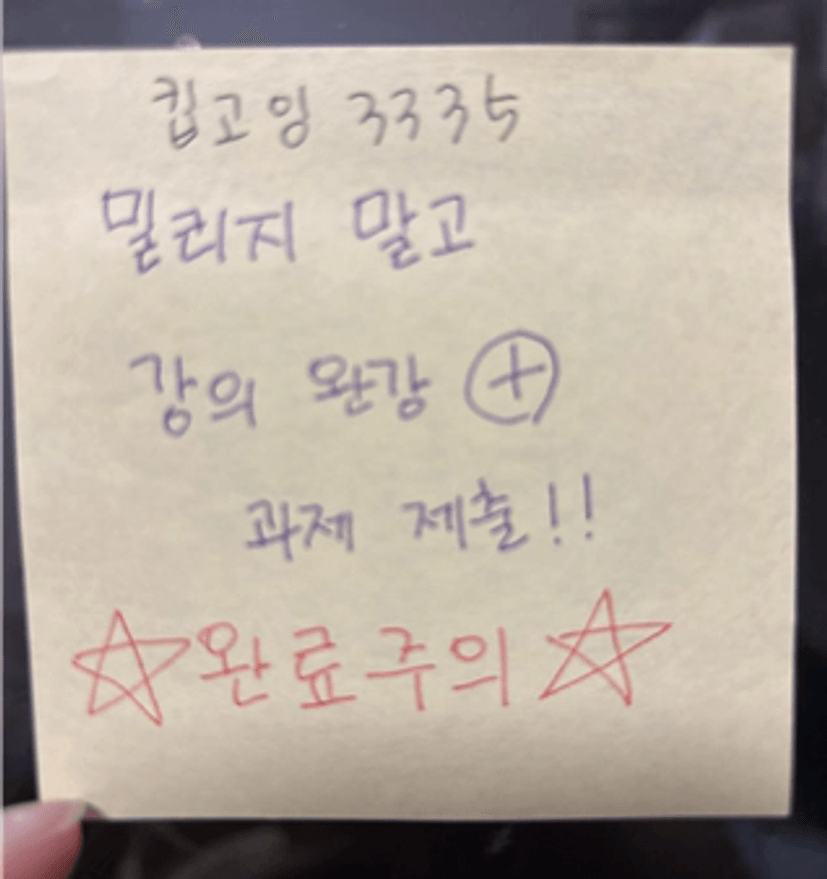 킵고잉 3335
밀리지 말고
강의 완강 ⊕
과제 제출!!
☆완료주의☆